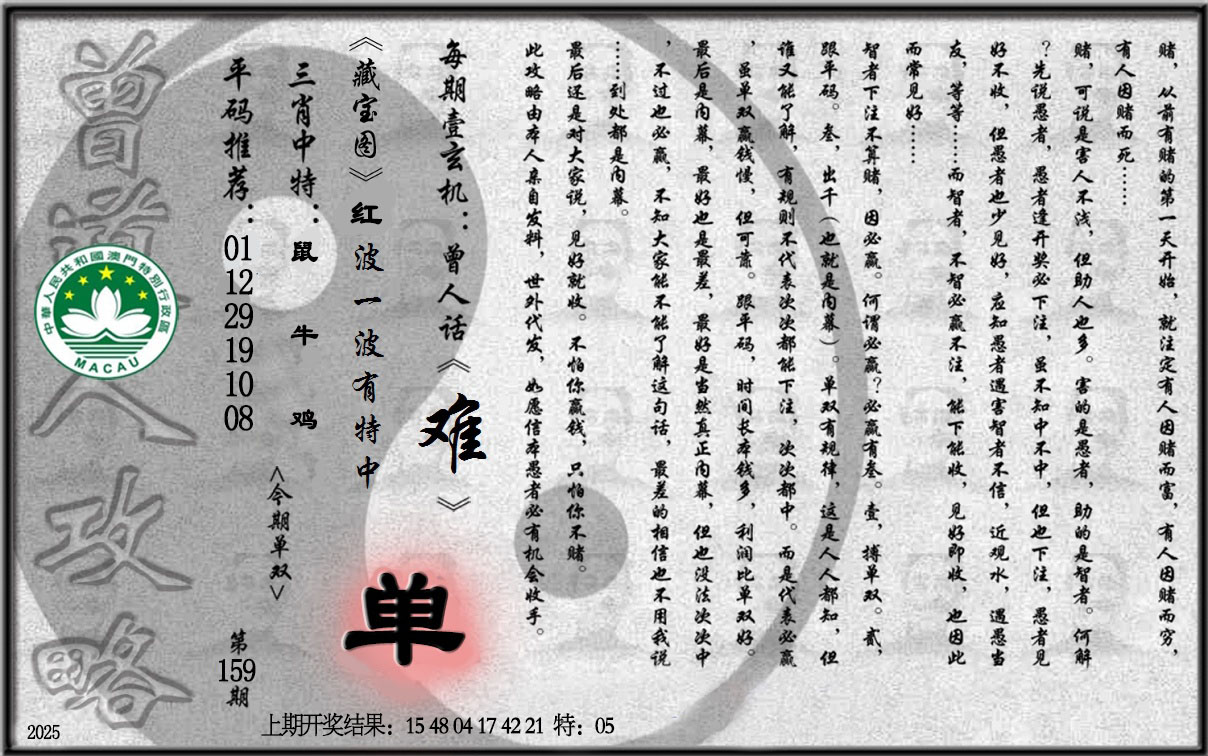 赌，从前有赌的第一天开始，就注定有人因赌而富，有人因赌而穷，
有人因赌而死……
赌，可说是害人不浅，但助人也多。害的是愚者，助的是智者。何解
？先说愚者，愚者逢开奖必下注，虽不知中不中，但也下注，愚者见
好不收，但愚者也少见好，应知愚者遇害智者不信，近观水，遇愚当
友，等等……而智者，不智必赢不注，能下能收，见好即收，也因此
而常见好……
智者下注不算赌，因必赢。何谓必赢？必赢有叁。壹，搏单双。贰，
跟平码。叁，出千（也就是内幕）。单双有规律，这是人人都知，但
谁又能了解，有规则不代表次次都能下注，次次都中。而是代表必赢
，虽单双赢钱慢，但可靠。跟平码，时间长本钱多，利润比单双好。
最后是内幕，最好也是最差，最好是当然真正内幕，但也没法次次中
，不过也必赢，不知大家能不能了解这句话，最差的相信也不用我说
……到处都是内幕。
最后还是对大家说，见好就收。不怕你赢钱，只怕你不赌。
此攻略由本人亲自发料，世外代发，如愿信本愚者必有机会收手。
每期壹玄机：曾人话《难》
《藏宝图》红波一波有特中
单
三肖中特：鼠 牛 鸡
<今期单双>
平码推荐：01 12 29 19 10 08
第159期
曾道人攻略
中華人民共和國澳門特別行政區
MACAU
2025
上期开奖结果：15 48 04 17 42 21 特：05